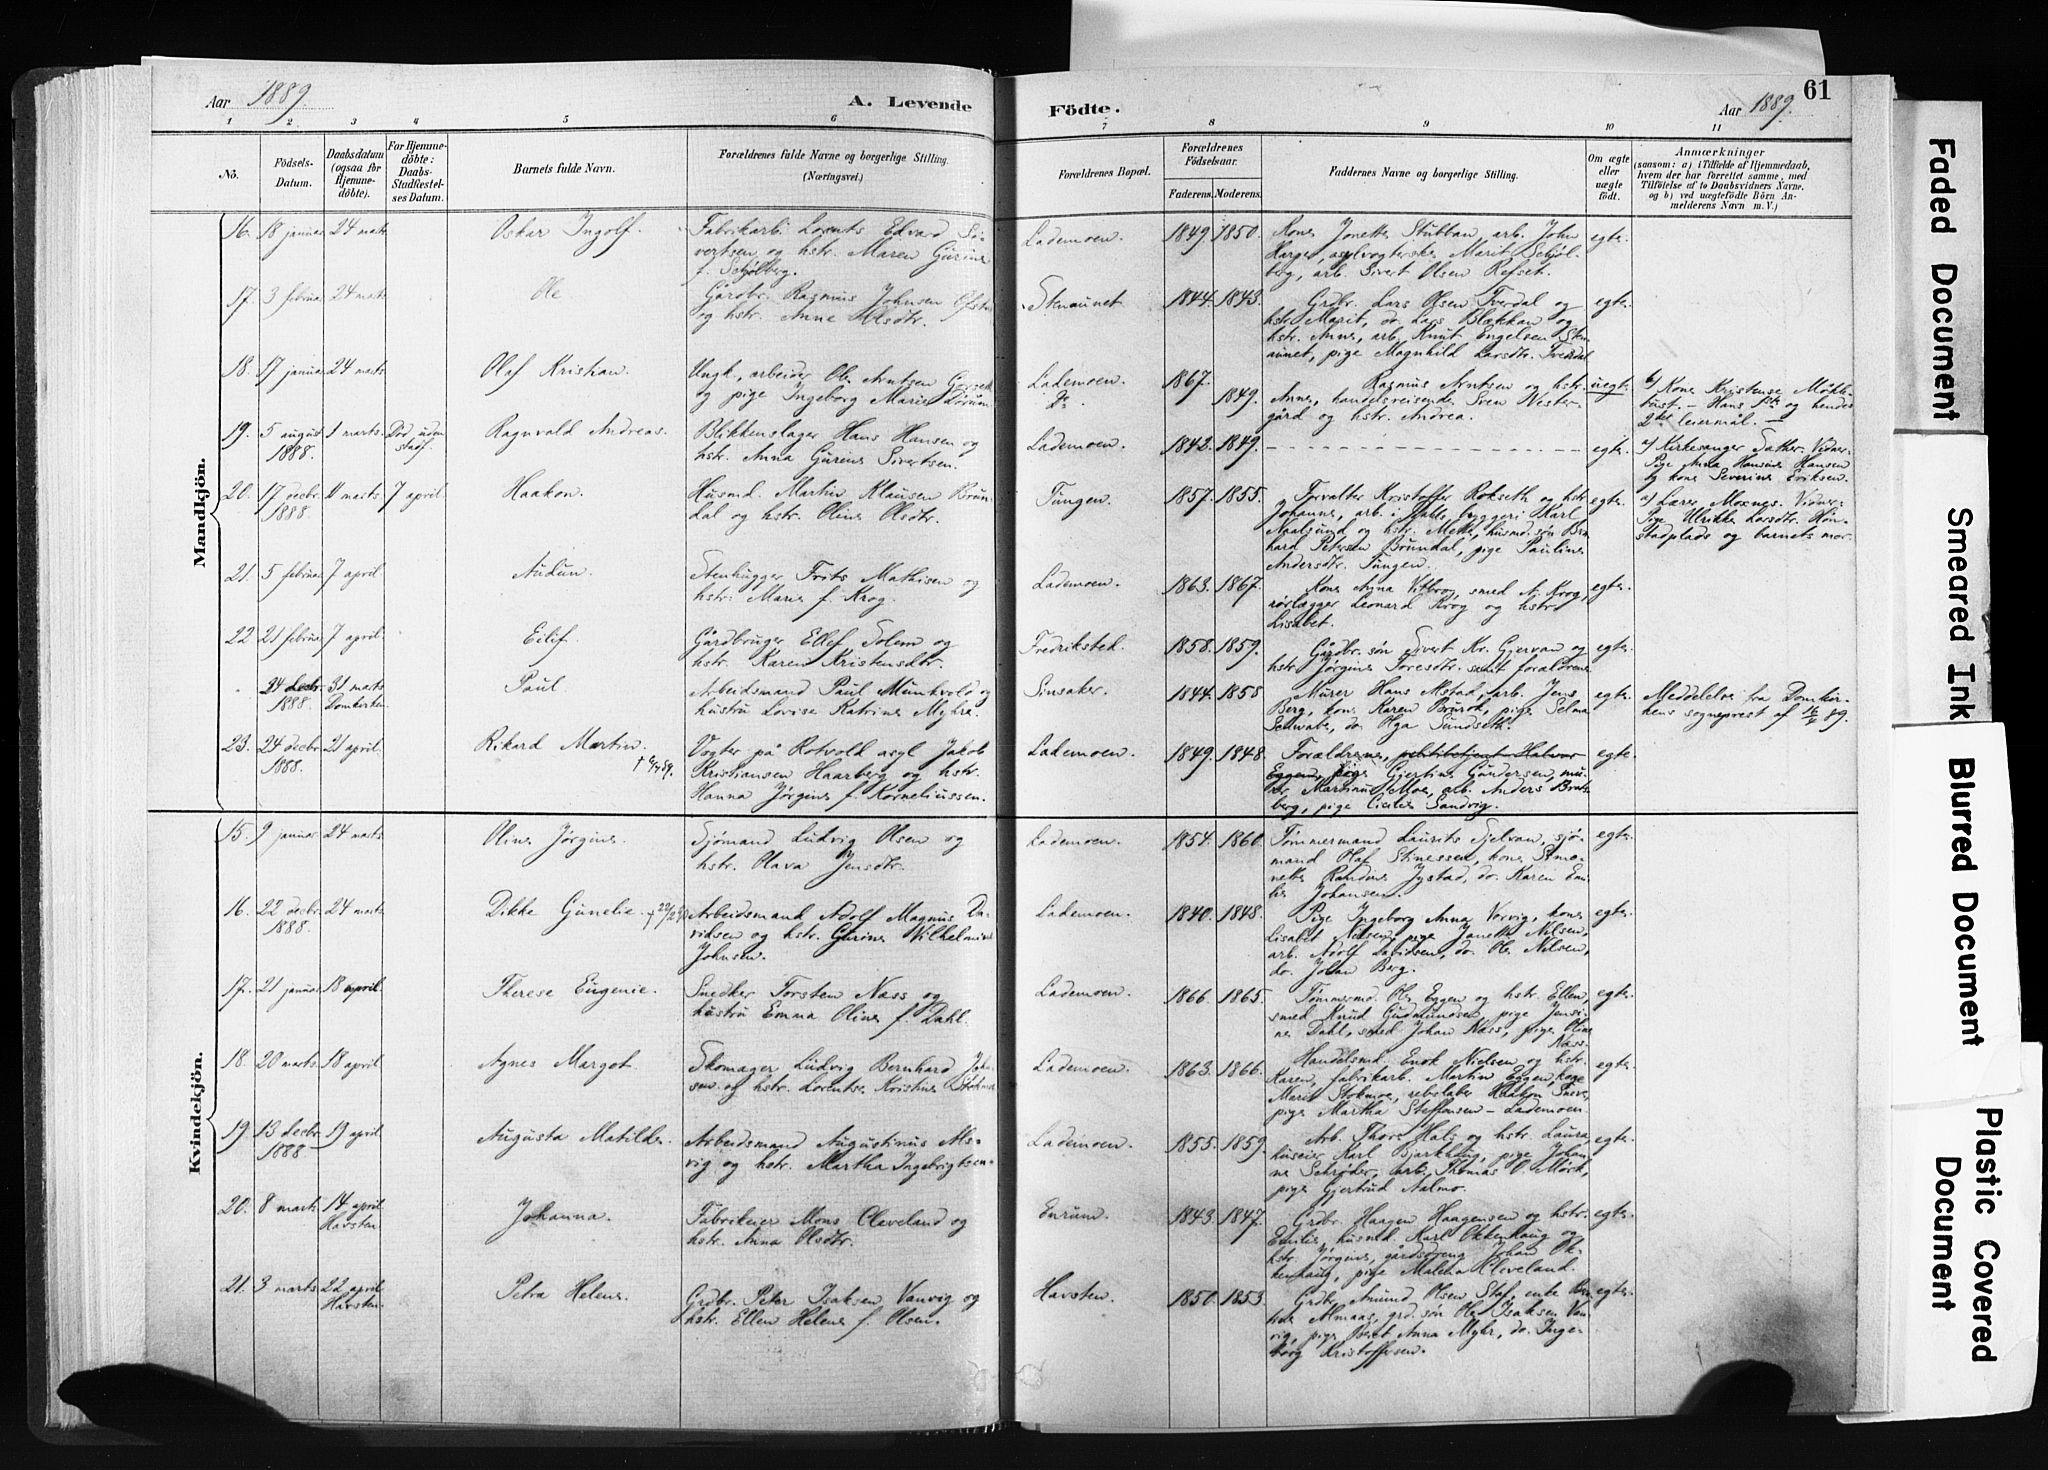 Aar 1889.
A. Levende
Födte.
Aar 1889.
61
1 2. 3 4 5 6 7 8 9 10 11
Nô.
Födsels-Datum.
Daabsdatum (ogsaa för Hjemmedöbte).
For Hjemmedöbte: Daabs-Stadfæstelses Datum.
Barnets fulde Navn.
Forældrenes fulde Navne og borgerlige Stilling. (Næringsvei.)
Forældrenes Bopæl.
Forældrenes Födselsaar.
Faderens. Moderens.
Faddernes Navne og borgerlige Stilling.
Om ægte eller uægte födt.
Anmærkninger
(saasom: a) i Tilfælde af Hjemmedaab, hvem der har forrettet samme, med Tilföielse af to Daabsvidners Navne, og b) ved uægtefödte Börn Anmelderens Navn m. V.)
Mandkjön.
16. 18 januar 24 marts Oskar Ingolf. Fabrikarb. Lorents Edvard Sivertsen og hstr. Maren Gurine f. Schjølberg. Lademoen. 1849. 1850. Kone Jonette Stubban, arb. John Harger, asylvogterske Marit Schjølberg, arb. Sivert Olsen Refset. egte.
17. 3 februar 24 marts Ole Gårdbr. Rasmus Johnsen og hstr. Anne Olsdtr. Stenaunet 1844. 1843. Grdbr. Lars Olsen Tverdal og hstr. Marit, do. Lars Blækkan og hstr. Anne, arb. Knut Engelsen Stenaunet, pige Magnhild Larsdtr. Tverdal egte.
18. 17 januar 24 marts Olaf Kristian. Ungk., arbeider Ole Arntsen og pige Ingeborg Marie Lademoen. do. 1867. 1849. Rasmus Arntsen og hstr. Anne, handelsreisende Sven Vestergård og hstr. Andrea. uegte. b) Kone Kristense Hans 1ste og hendes 2det leiermål.
19. 5 august 1888. 1 marts. Død uden stadf. Ragnvald Andreas. Blikkenslager Hans Hansen og hstr. Anna Gurine Sivertsen. Lademoen. 1842. 1849. egte. a) Kirkesanger Sather. Vidner: Pige Anna Hansine Hansen og kone Severine Eriksen.
20. 17 decbr. 1888. 11 marts. 7 april Haakon. Husmd. Martin Klausen Brundal og hstr. Oline Olsdtr. Tungen. 1857. 1855. Forvalter Kristoffer Rokseth og hstr. Johanne, arb. i byggeri Karl Naalsund og hstr. Mette, husmd. søn Bernhard Petersen Brundal, pige Pauline Andersdtr. Tungen. egte. a) Lærer Moxnes. Vidner: Pige Ulrikke Larsdtr. og barnets mor.
21. 5 februar 7 april. Audun. Stenhugger Frits Mathisen og hstr. Marie f. Krog. Lademoen. 1863. 1867. Kone Anna smed A. Krog, rørlægger Leonard Krog og hstr. Lisabet. egte.
22 21 februar 7 april. Eilif. Gårdbruger Ellef Solem og hstr. Karen Kristensdtr. Fredriksted. 1858. 1859. Gårdbr. søn Sivert Kr. Gjervan og hstr. Jørgine Toresdtr. samt forældrene. egte.
24 decbr. 1888. 31 marts Domkirken Paul. Arbeidsmand Paul Munkvold og hustru Lovise Katrine Myhre. Sinsaker. 1844. 1858 Murer Hans Mstad, arb. Jens Berg, kone Karen pige Selma Schwabe, do. Olga Sundseth. egte. Meddelelse fra Domkirkens sogneprest af 89.
23. 24 decbr. 1888. 21 april. Rikard Martin. Vogter på Rotvold asyl Jakob Kristiansen Haarberg og hstr. Hanna Jørgine f. Korneliussen. Lademoen. 1849. 1848. Forældrene, Halvor Eggen, pige Gjertine Gundersen, murer Martinus Moe, arb. Anders Bratsberg, pige Cicilie Sandvig. egte.
Kvindekjön.
15. 9 januar 24 marts. Oline Jørgine. Sjømand Ludvig Olsen og hstr. Olava Jensdtr. Lademoen. 1854. 1860. Tømmermand Laurits Sjelvan, sjømand Olaf Stinessen, kone Simonette Randine Jystad, do. Karen Emilie Johansen. egte.
16. 22 decbr. 1888. 24 marts. Dikke Gunelie. Arbeidsmand Adolf Magnus Davidsen og hstr. Gurine Vilhelmine Johnsen. Lademoen. 1840. 1848. Pige Ingeborg Anna Vorvig, kone Lisabet Nilsen, pige Janette Nilsen, arb. Adolf Davidsen, do. Ole Nilsen, do. Johan Berg. egte.
17. 21 januar 18 april. Therese Eugenie. Snedker Torsten Næss og hustru Emma Oline f. Dahl. Lademoen. 1866. 1865. Tømmermd. Ole Eggen og hstr. Ellen, smed Knud Gudmundsen, pige Jensine Dahl, smed Johan Næss, pige Oline Næss. egte.
18. 20 marts. 18 april Agnes Margot. Skomager Ludvig Bernhard Johansen og hstr. Lorentse Kristine Lademoen. 1863. 1866. Handelsmd. Enok Nielsen og hstr. Karen, fabrikarb. Martin Eggen, kone Marit Stokmoe, rebslaber Haakon pige Martha Steffensen – Lademoen egte.
19. 13 decbr. 1888 19 april Augusta Matilde. Arbeidsmand Augustinus Alsvig og hstr. Martha Ingebrigtsen. Lademoen. 1855. 1859. Arb. Thore Hals og hstr. Laura, huseier Karl Bjørkhaug, pige Johanne Schrøder, arb. Thomas O. Mørk, pige Gjertrud Aalmo. egte.
20. 8 marts. 14 april Havsten Johanna. Fabrikeier Mons Cleveland og hstr. Anna Olsdtr. Enrum. 1843. 1847. Grdbr. Haagen Haagensen og hstr. Emilie, husmd. Karl Okkenhaug og hstr. Jørgine, gårdsdreng Johan Okkenhaug, pige Malena Kleveland. egte.
21. 3 marts. 22 april Havsten. Petra Helene. Grdbr. Peter Isaksen Vanvig og hstr. Ellen Helene f. Olsen. Havsten. 1850. 1853. Grdbr. Amund Olsen Staf, enke Almaas, grd. søn Ole Isaksen Vanvig, pige Beret Anna Myhr, do. Ingeborg Kristoffersen. egte.
Faded Document
Smeared Ink
Blurred Document
Plastic Covered Document